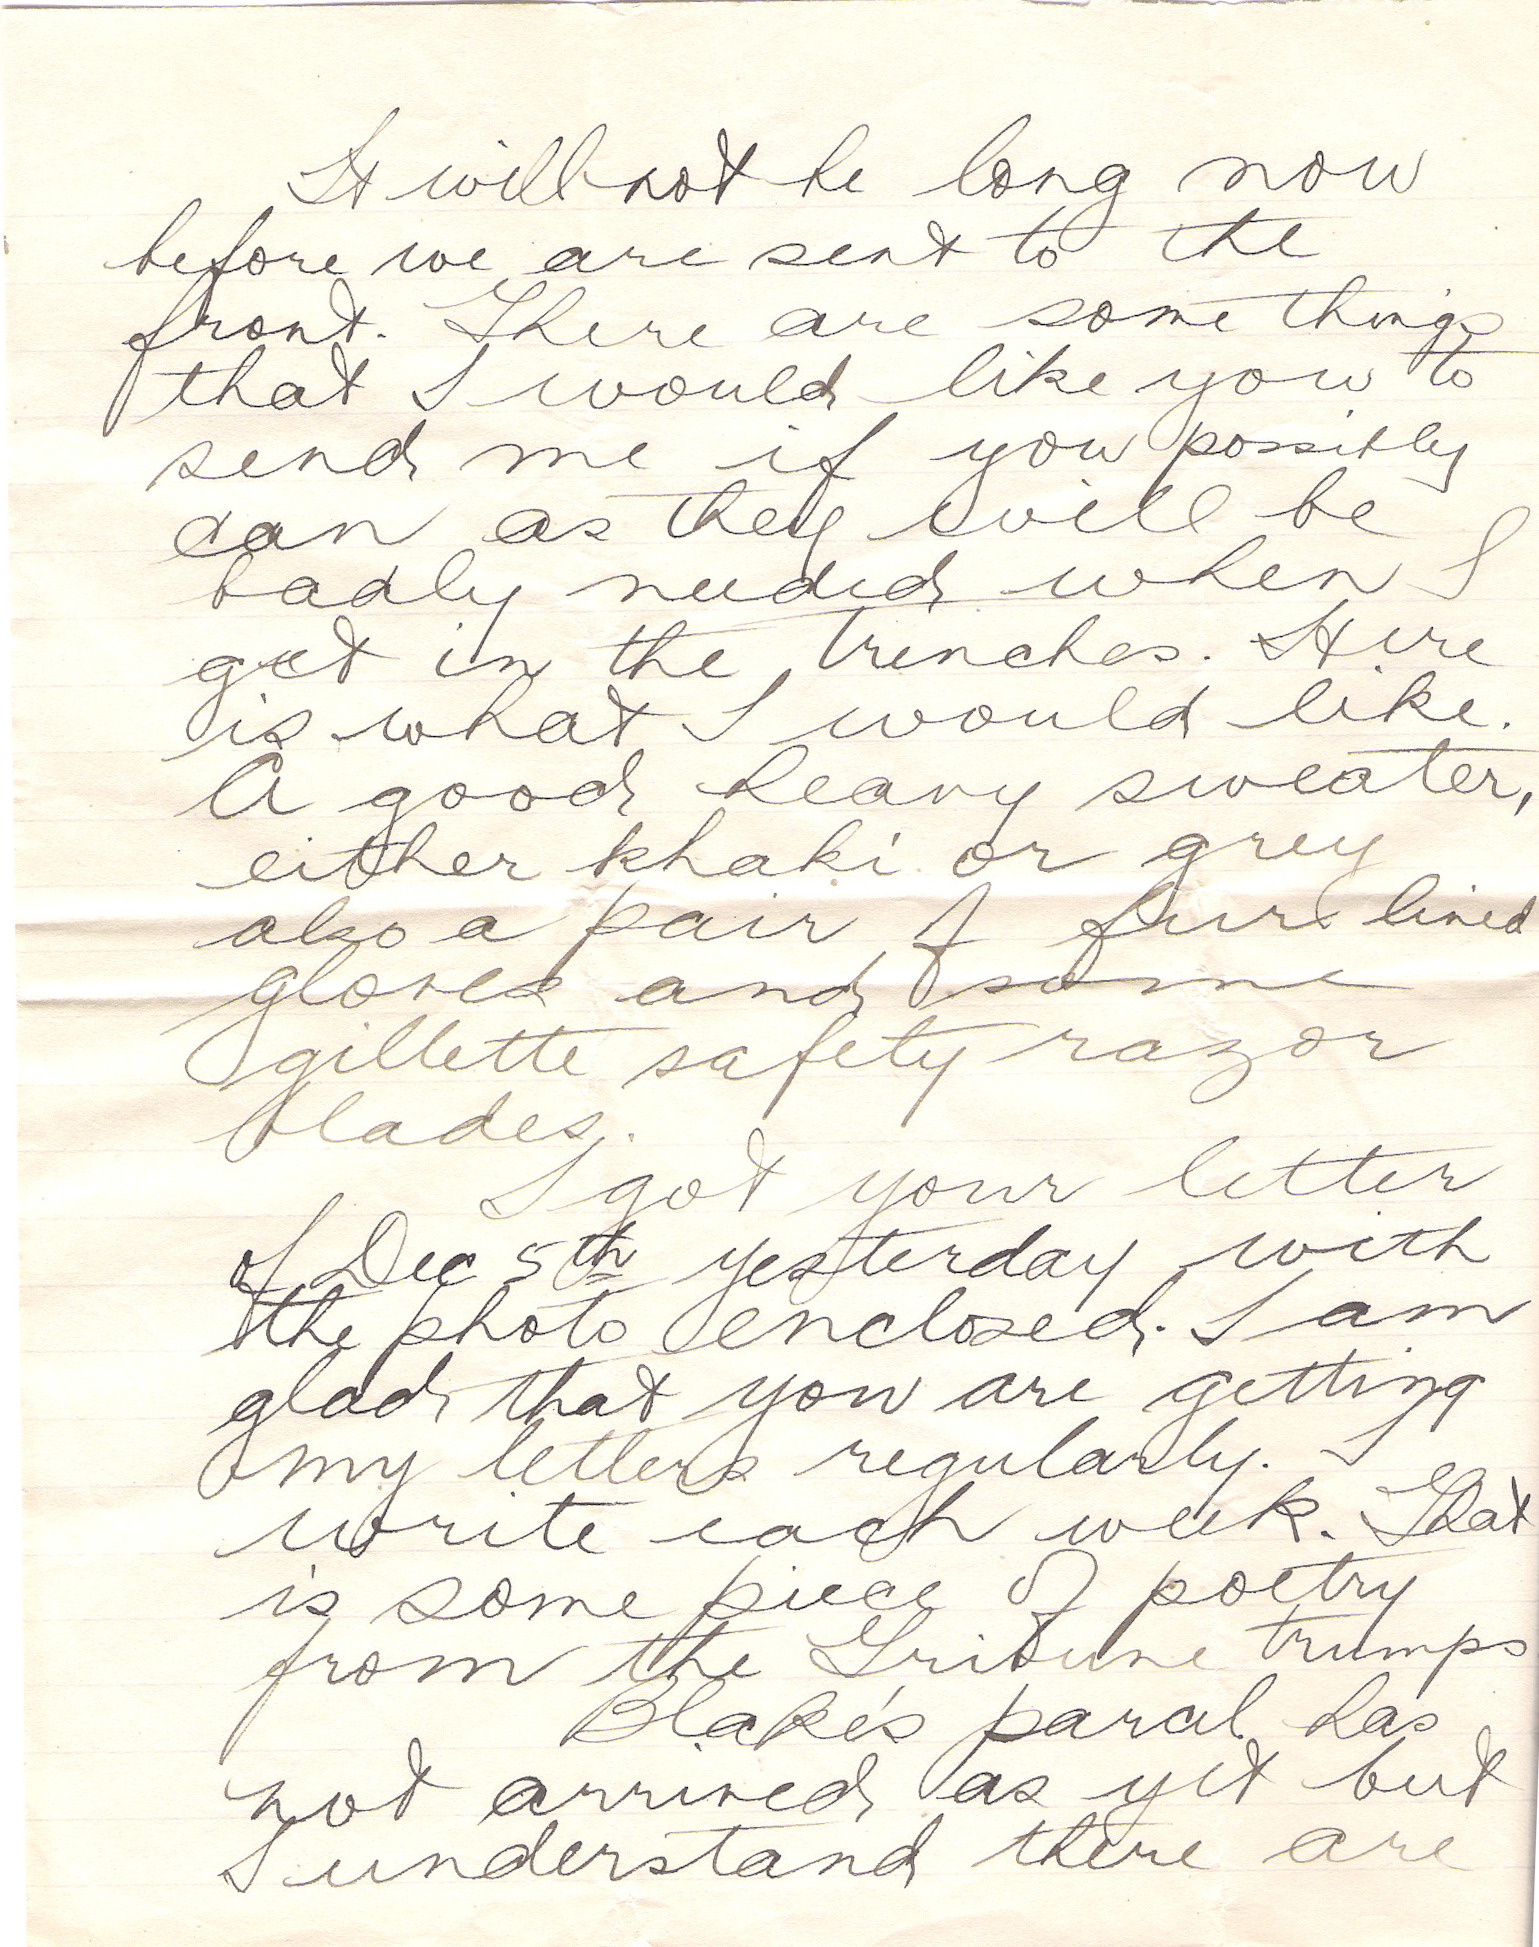 It will not be long now
before we are sent to the
front. There are some things
that I would like you to
send me if you possibly
can as they will be
badly needed when I
get in the trenches. Here
is what I would like.
A good heavy sweater,
either khaki or grey
also a pair of fur lined
gloves and some
gillette safety razor
blades.
I got your letter
of Dec 5th yesterday with
the photo enclosed. I am
glad that you are getting
my letters regularly. I
write each week. That
is some piece of poetry
from the Tribune trumps
Blake's parcel has
not arrived as yet but
I understand there are